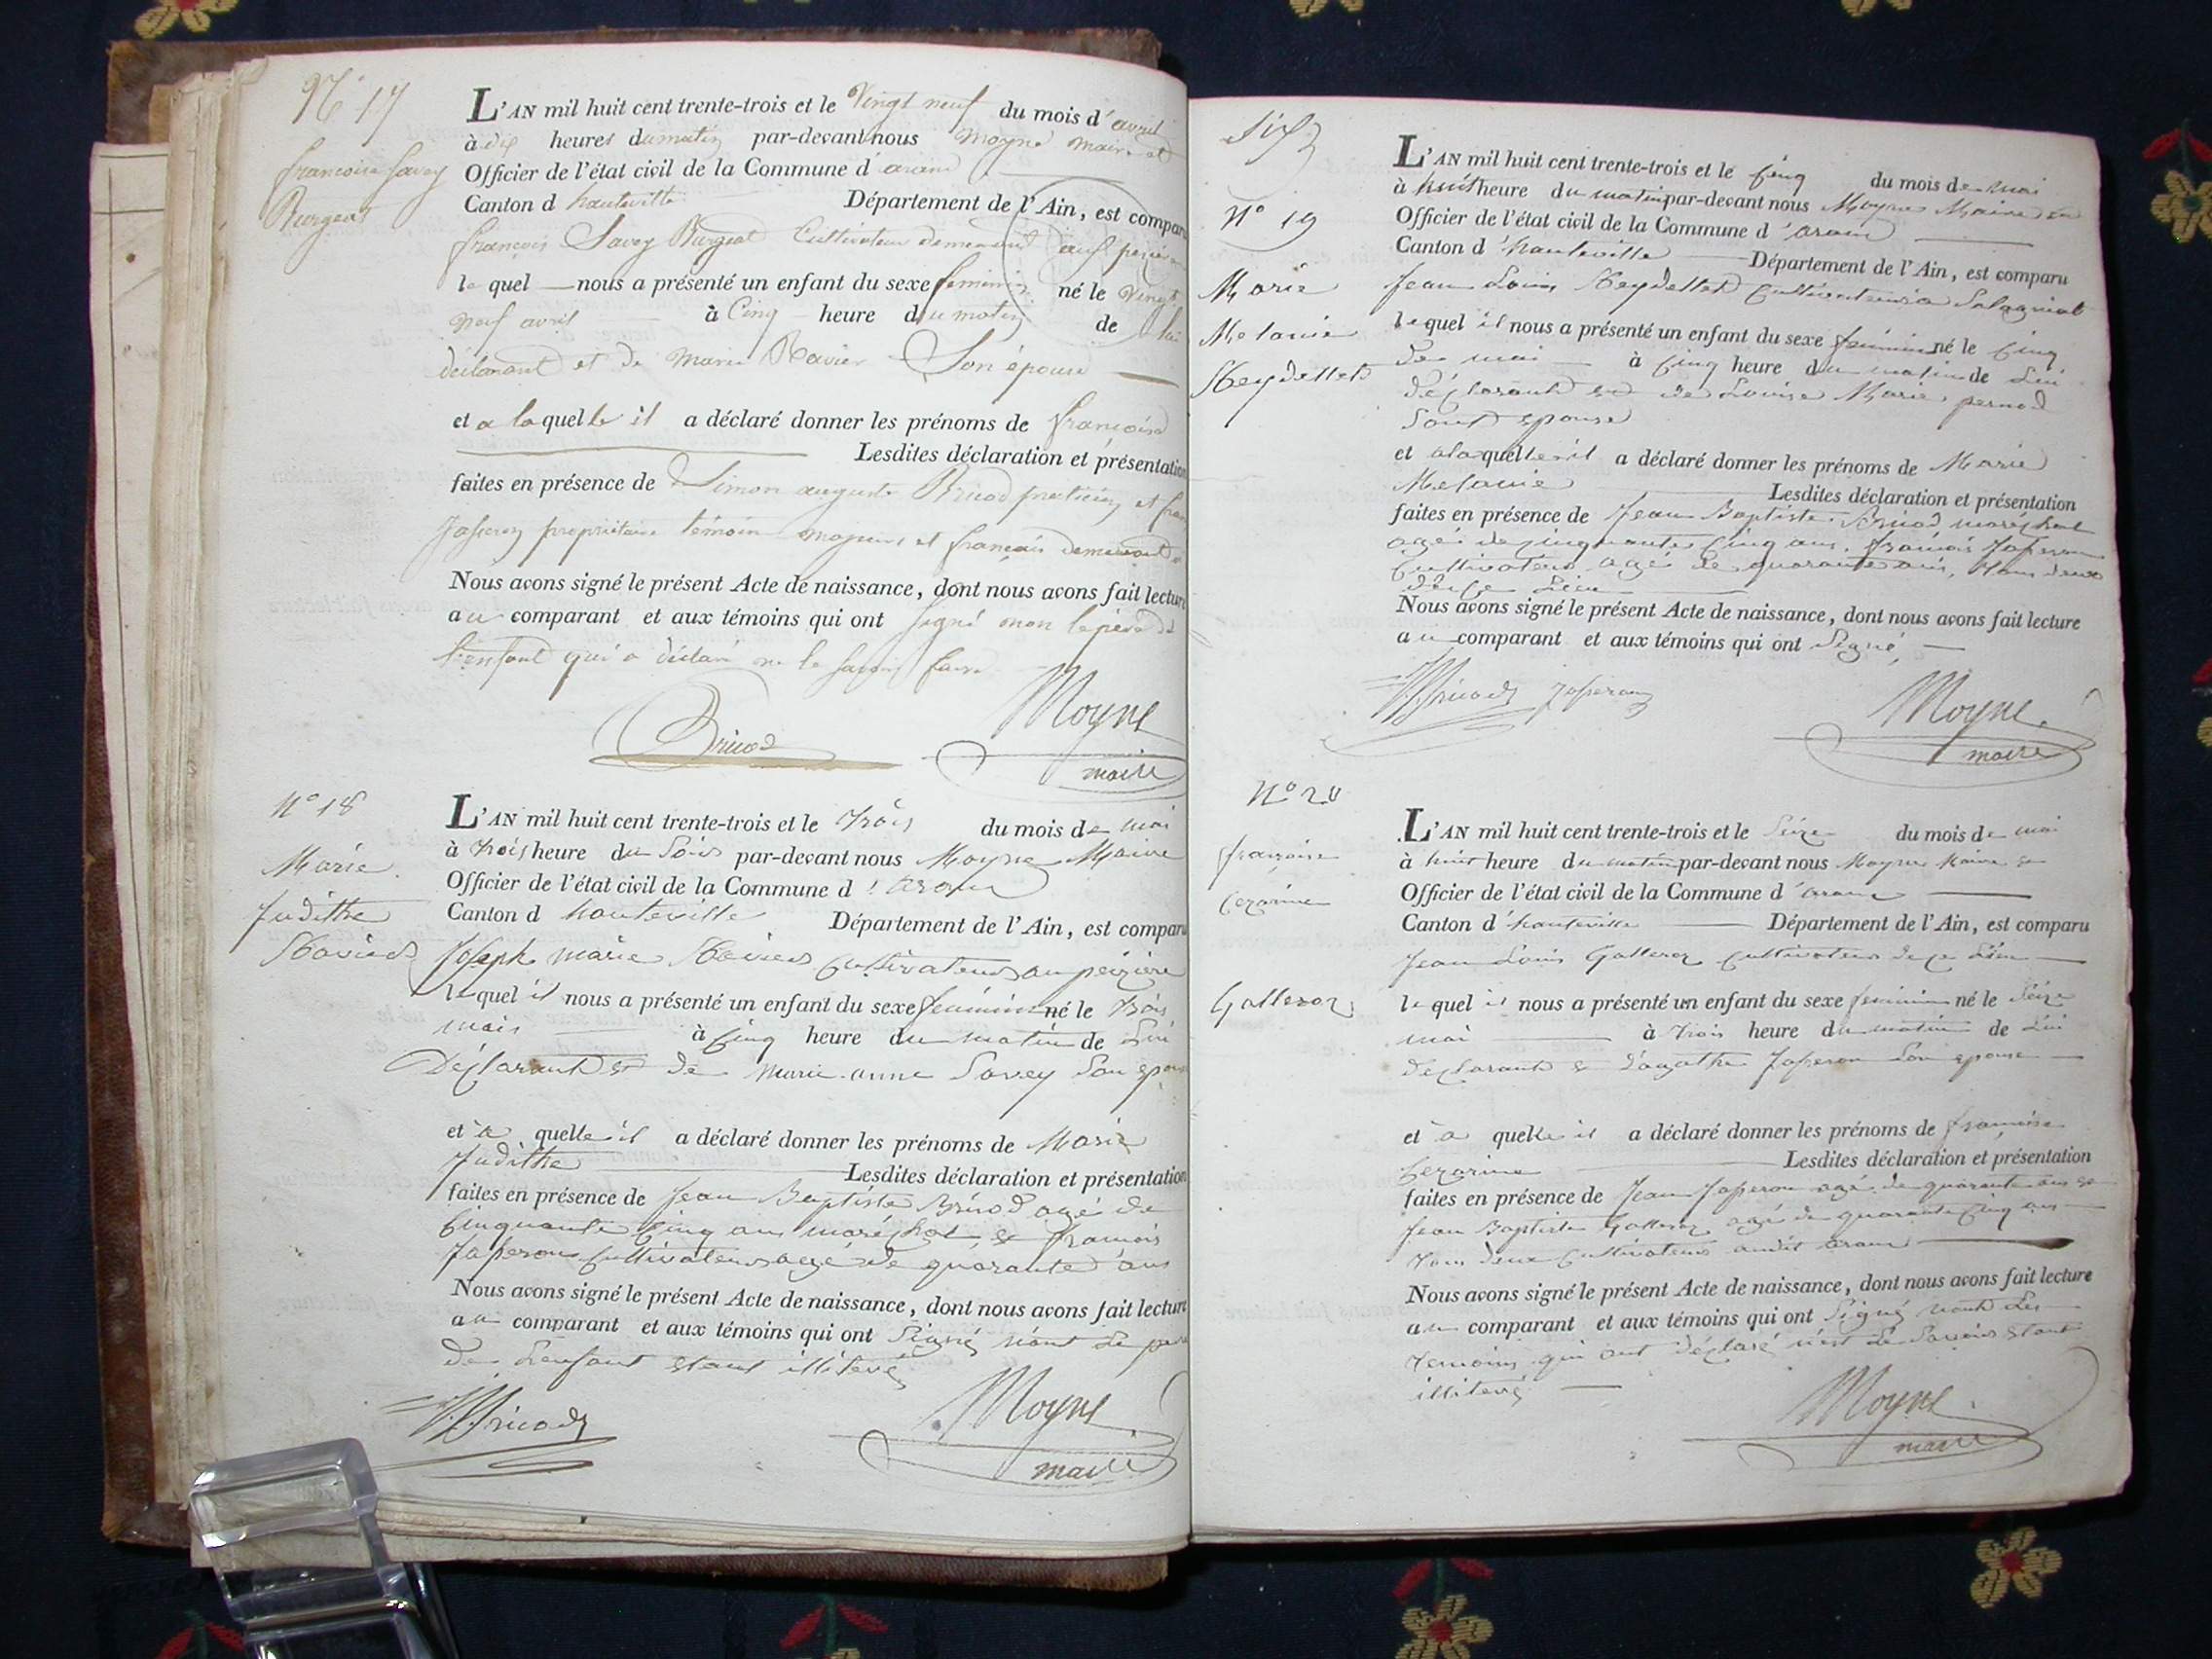 N° 17
francoise Savey
Burgeat
L'AN mil huit cent trente-trois et le Vingt neuf du mois d'avril
à dix heures du matin par-devant nous Moyne Maire et
Officier de l'état civil de la Commune d'aranc
Canton d hauteville Département de l'Ain, est comparu
françois Savey Burgeat Cultivateur demeurant
le quel nous a présenté un enfant du sexe feminin né le Vingt
neuf avril à Cinq heure du matin de lui
déclarant et de Marie Ravier Son épouse
et a laquelle il a déclaré donner les prénoms de francoise
Lesdites déclaration et présentation
faites en présence de Simon auguste Bricod praticien et
Josseron propriétaire témoin majeurs et français demeurant
Nous avons signé le présent Acte de naissance, dont nous avons fait lecture
au comparant et aux témoins qui ont signé non le père de
l'enfant qui a déclaré ne le savoir faire
Bricod Moyne
maire
N° 18
Marie
Judithe
Ravier
L'AN mil huit cent trente-trois et le Trois du mois de mai
à trois heure du Soir par-devant nous Moyne Maire
Officier de l'état civil de la Commune d'aranc
Canton d hauteville Département de l'Ain, est comparu
Joseph marie Ravier Cultivateur au peizière
le quel il nous a présenté un enfant du sexe feminin né le trois
mais à Cinq heure du matin de Lui
Déclarant et de Marie anne Savey Son epouse
et a quelle il a déclaré donner les prénoms de Marie
Judithe Lesdites déclaration et présentation
faites en présence de Jean Baptiste Bricod agé de
Cinquante Cinq ans maréchal et francois
Josseron Cultivateur agé de quarante ans
Nous avons signé le présent Acte de naissance, dont nous avons fait lecture
au comparant et aux témoins qui ont Signé nont Le pere
de Lenfant etant illiteré
Bricod Moyne
maire
Six
N° 19
Marie
Melanie
Reydellet
L'AN mil huit cent trente-trois et le Cinq du mois de mai
à huit heure du matin par-devant nous Moyne Maire et
Officier de l'état civil de la Commune d'aranc
Canton d'hauteville Département de l'Ain, est comparu
Jean Louis Reydellet Cultivateur a
le quel il nous a présenté un enfant du sexe feminin né le Cinq
de mai à Cinq heure du matin de Lui
déclarant et de Louise Marie pernod
Sont epouse
et a laquelle il a déclaré donner les prénoms de Marie
Melanie Lesdites déclaration et présentation
faites en présence de Jean Baptiste Bricod maréchal
agé de Cinquante Cinq ans. francois Josseron
Cultivateur agé de quarante ans, tous deux
de ce Lieu
Nous avons signé le présent Acte de naissance, dont nous avons fait lecture
au comparant et aux témoins qui ont Signé
Bricod Josseron Moyne
maire
N° 20
françoise
Cezarine
Galleron
L'AN mil huit cent trente-trois et le Seize du mois de mai
à huit heure du matin par-devant nous Moyne Maire et
Officier de l'état civil de la Commune d'aranc
Canton d'hauteville Département de l'Ain, est comparu
Jean Louis Galleron Cultivateur de ce Lieu
le quel il nous a présenté un enfant du sexe feminin né le Seize
mai à trois heure du matin de Lui
declarant et d'agathe Josseron Son epouse
et a quelle il a déclaré donner les prénoms de francoise
Cezarine Lesdites déclaration et présentation
faites en présence de Jean Josseron agé de quarante ans et
Jean Baptiste Galleron agé de quarante Cinq ans
tous deux Cultivateurs audit aranc
Nous avons signé le présent Acte de naissance, dont nous avons fait lecture
au comparant et aux témoins qui ont Signé nont Les
temoins qui ont déclaré Le Savoir etant
illiteré
Moyne
maire